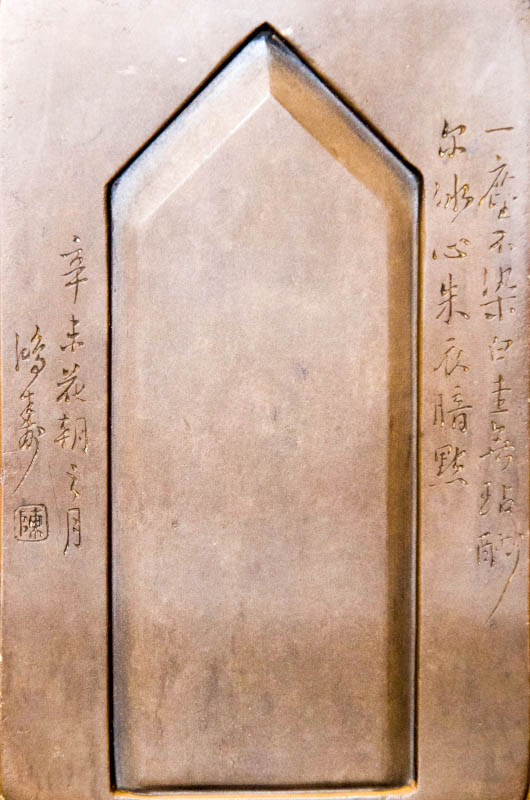 一塵不染白圭無玷酬
尔冰心朱衣暗點
辛未花朝之月
鴻壽
陳